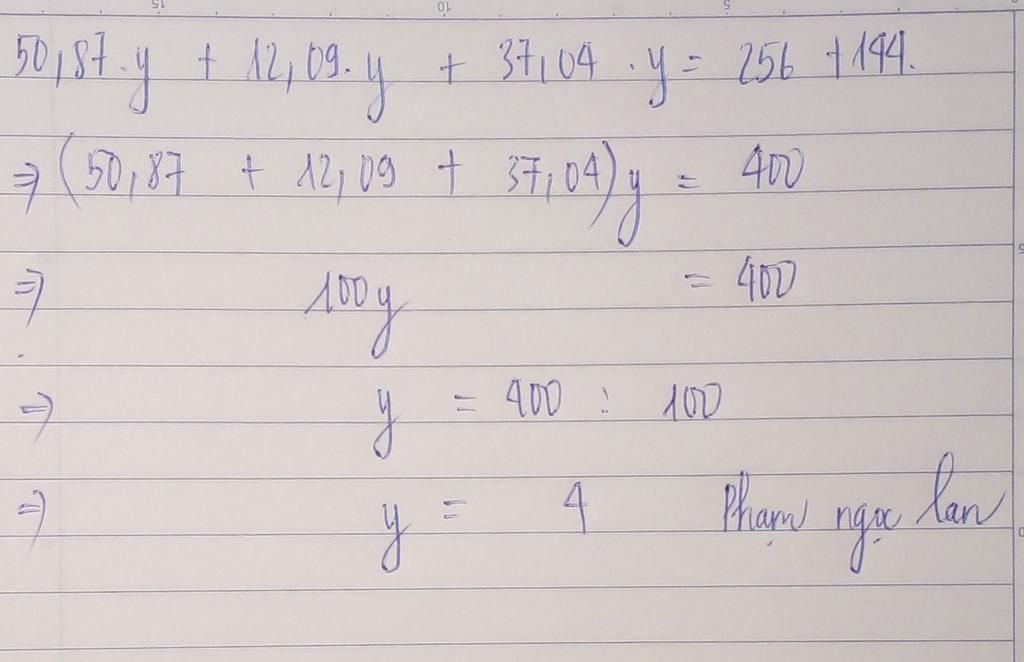 50,87.y + 12,09.y + 37,04.y = 256 + 144.
⇒ (50,87 + 12,09 + 37,04)y = 400
⇒ 100y = 400
⇒ y = 400 : 100
⇒ y = 4 Phạm ngọc lan